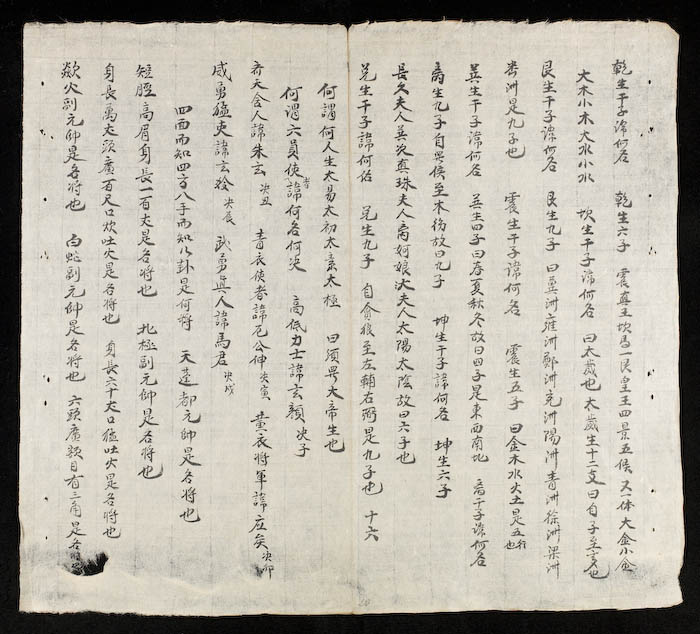 乾生干子諱何名 乾生六子 震真王坎馬一艮皇王四景五候 又一体大金小金
大木小木大水小水 坎生干子諱何名 曰太歲也太歲生十二支曰自子至亥也
艮生干子諱何名 艮生九子 曰冀洲雍洲鄭洲兖洲陽洲青洲徐洲梁洲
洲是九子也 震生干子諱何名 震生五子 曰金木水火土是五行也
巽生干子諱何名 巽生四子曰春夏秋冬故曰四子是東西南北 离干子諱何名
离生九子自 候至木 故曰九子 坤生干子諱何名 坤生六子
長久夫人 次真珠夫人 娘次夫人太陽太陰故曰六子也
兑生干子諱何名 兑生九子 自貪狼至左輔右弼是九子也 十六
何謂何人生太易太初太素太極 曰須 大帝生也
何謂六員使者諱何名何决 高低力士諱玄額决子
舍人諱朱玄决丑 青衣使者諱 公伸决寅 黄衣將軍諱应矣决卯
威勇猛夫諱玄 决辰 武勇真人諱馬君决戌
四面而知四方八手而知八卦是何將 天蓬都元帥是名將也
短脛高眉身長一百丈是名將也 北極副元帥是名將也
身長萬丈頭廣百尺口炊吐火是名將也 身長六十丈口猛吐火是名將也
欻火副元帥是名將也 白蛇副元帥是名將也 六頭廣額目有三角是名